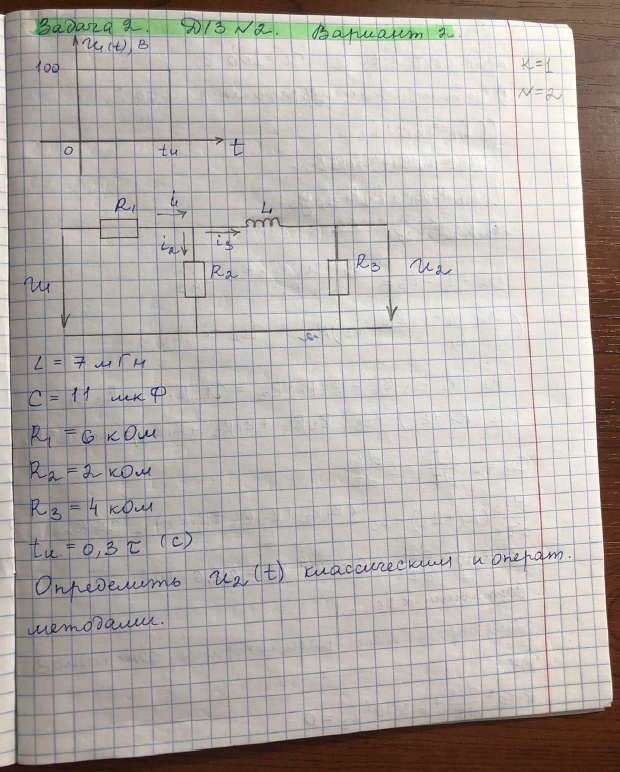 Задача 2. ДЗ №2. Вариант 2.
K=1
N=2
u₁(t), В
100
0 tu t
R₁ i₁ L
i₂ i₃
u₁ R₂ R₃ u₂
L = 7 мГн
C = 11 мкФ
R₁ = 6 кОм
R₂ = 2 кОм
R₃ = 4 кОм
tu = 0,3 τ (с)
Определить u₂(t) классическим и операт.
методами.